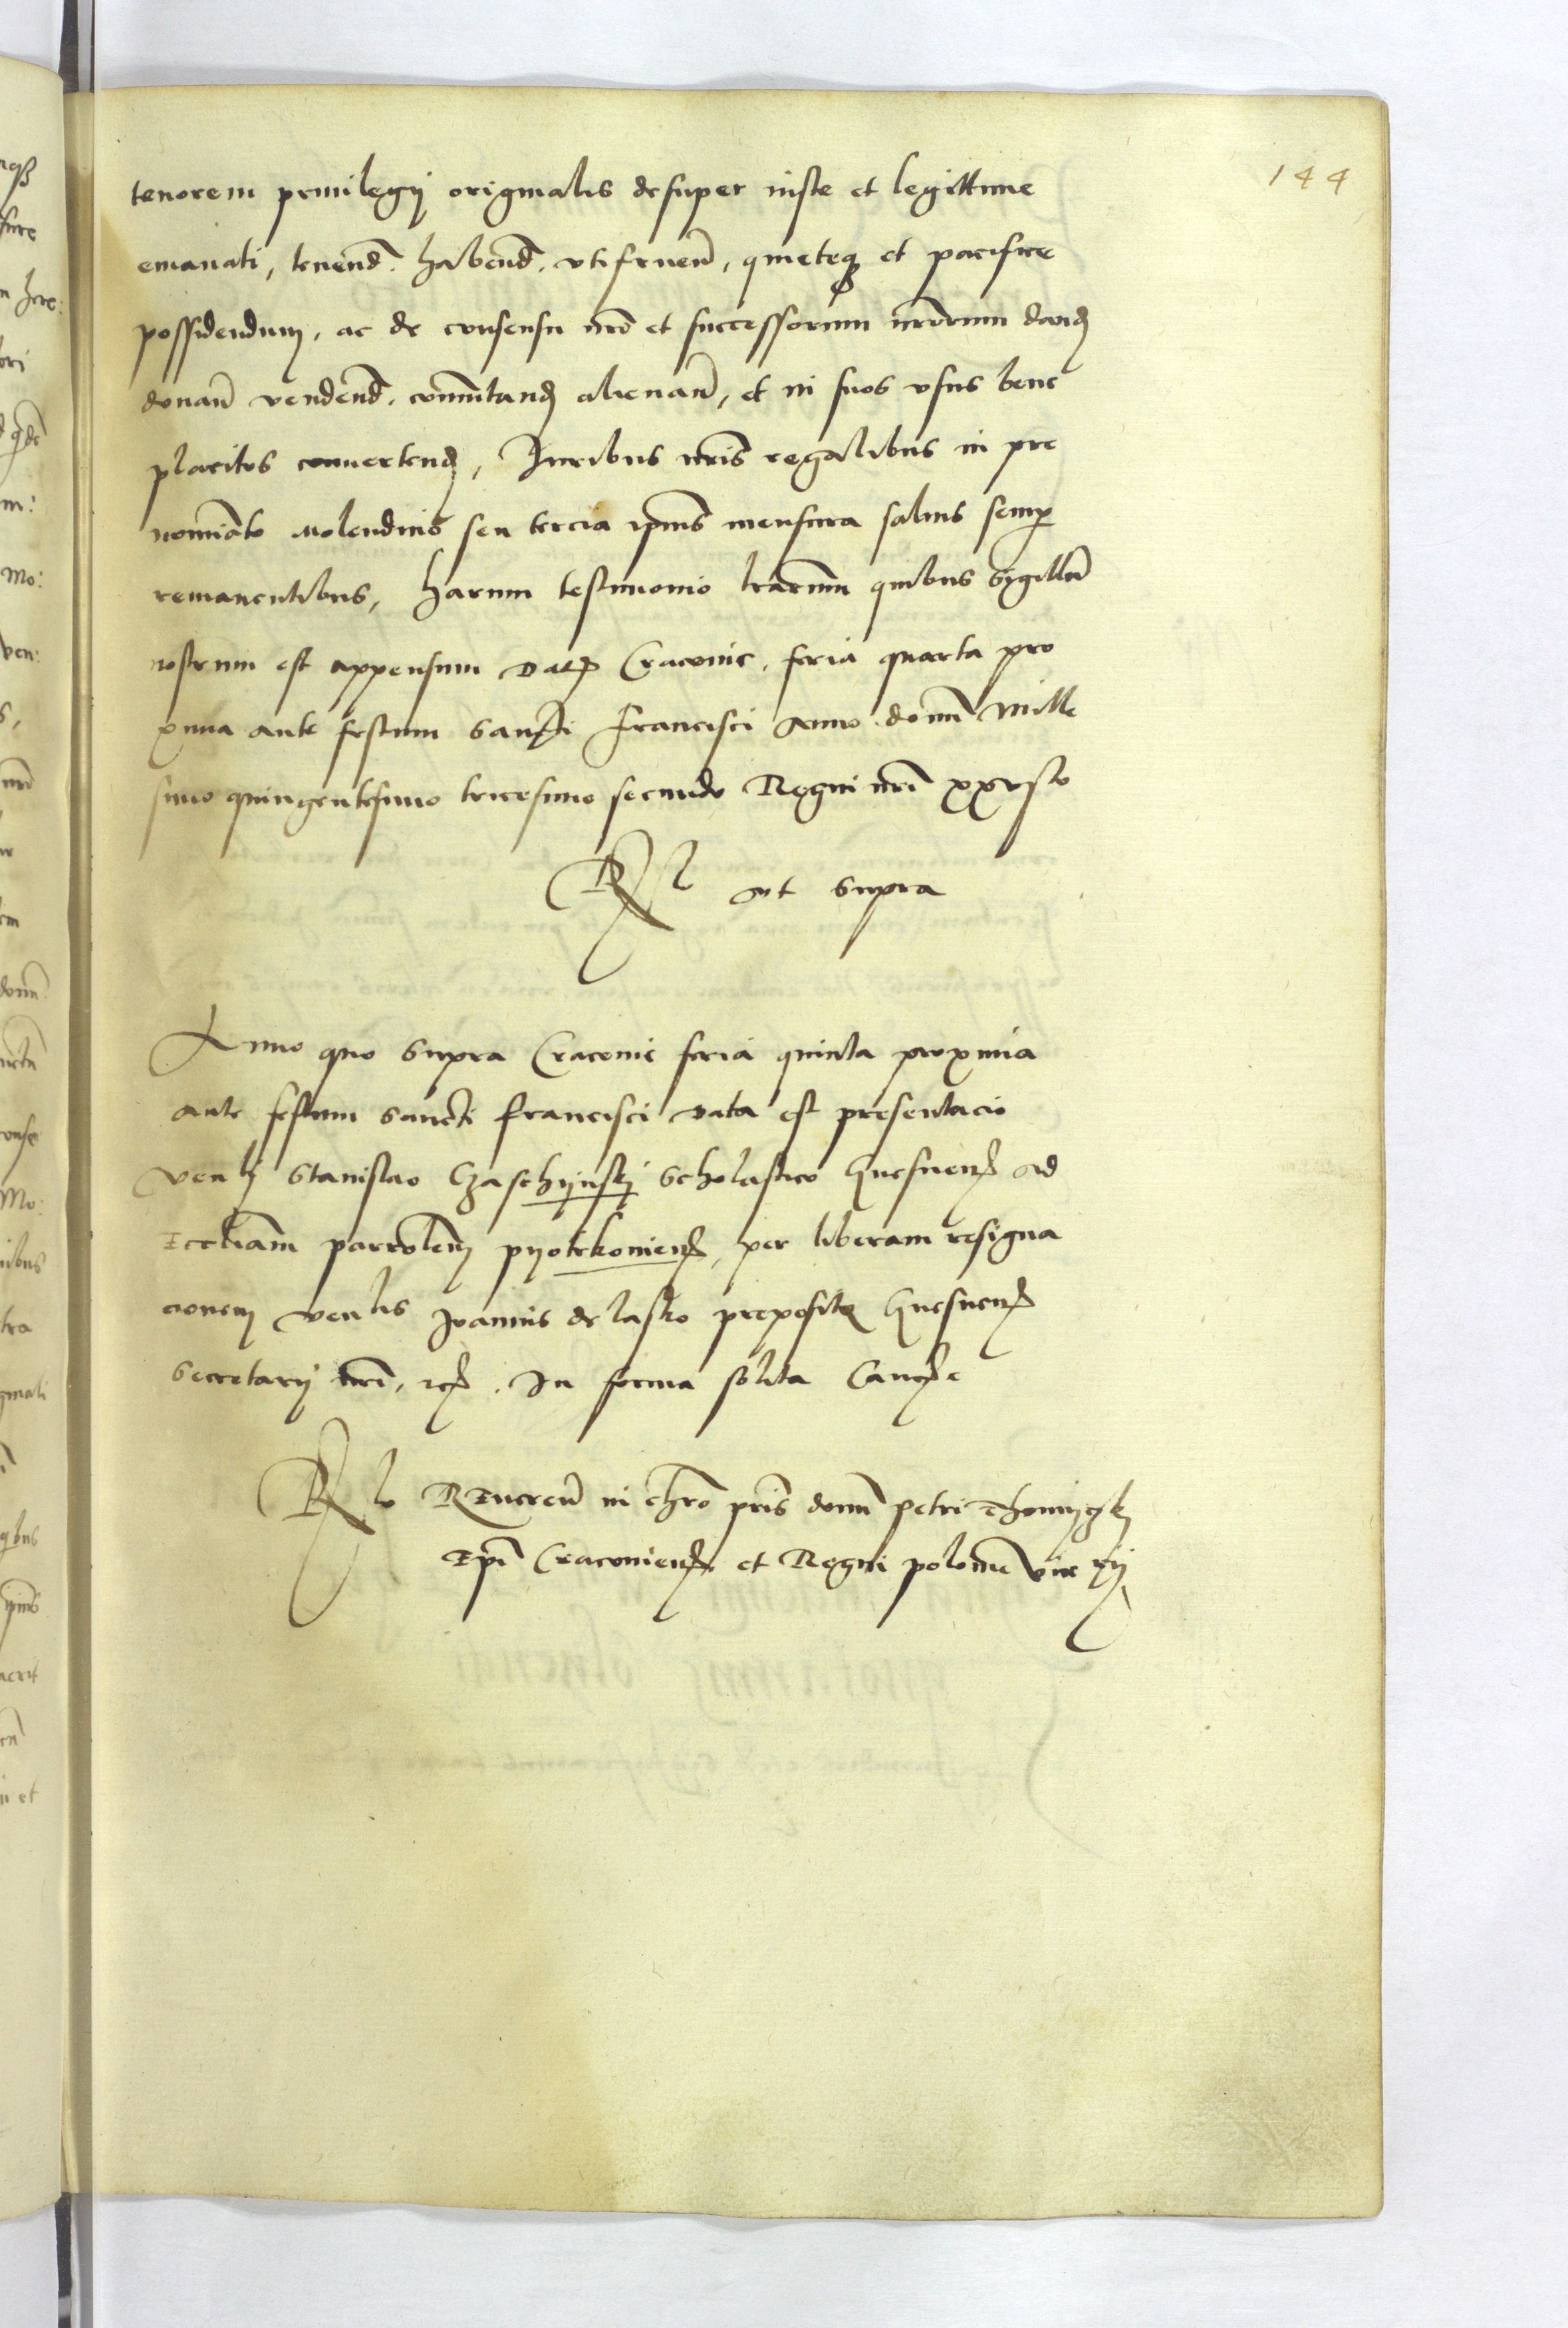 144
tenorem privilegij originalis desuper iuste et legittime
emanati, tenend. habend. utifruen̄, quieteq3 et pacifice
possidendum, ac de consensu nrō et successorum nrōrum dand
donan̄ vendend. commutand alienan̄, et in suos vsus bene
placitos conuertend, Iuribus nrīs regalibus in pre
nomiāto Molendino seu tercia ipīus mensura saluis semp
remanentibus, harum testimonio lrārum quibus Sigillū
nostrum est appensum Dat Cracouie, feria quarta pro
xima ante festum Sancti Francisci Anno domī Mille
simo quingentesimo tricesimo secundo Regni nrī xxvsto
Rl ut Supra
Anno quo Supra Cracouie feria quinta proxima
ante festum Sancti Francisci data est presentacio
Venli Stanislao Czaschijnskij Scholastico Gnesnen ad
Eccliam parrolem pyotrkouien, per liberam resigna
cionem Venlis Ioannis de lasko prepositi Gnesnen
Secretarij nrī, etc. In forma solita Canc e
Rlo Reueren̄ in chrō prīs domī Petri Thomijczkj
Epī Cracouien et Regni poloniē vice cij